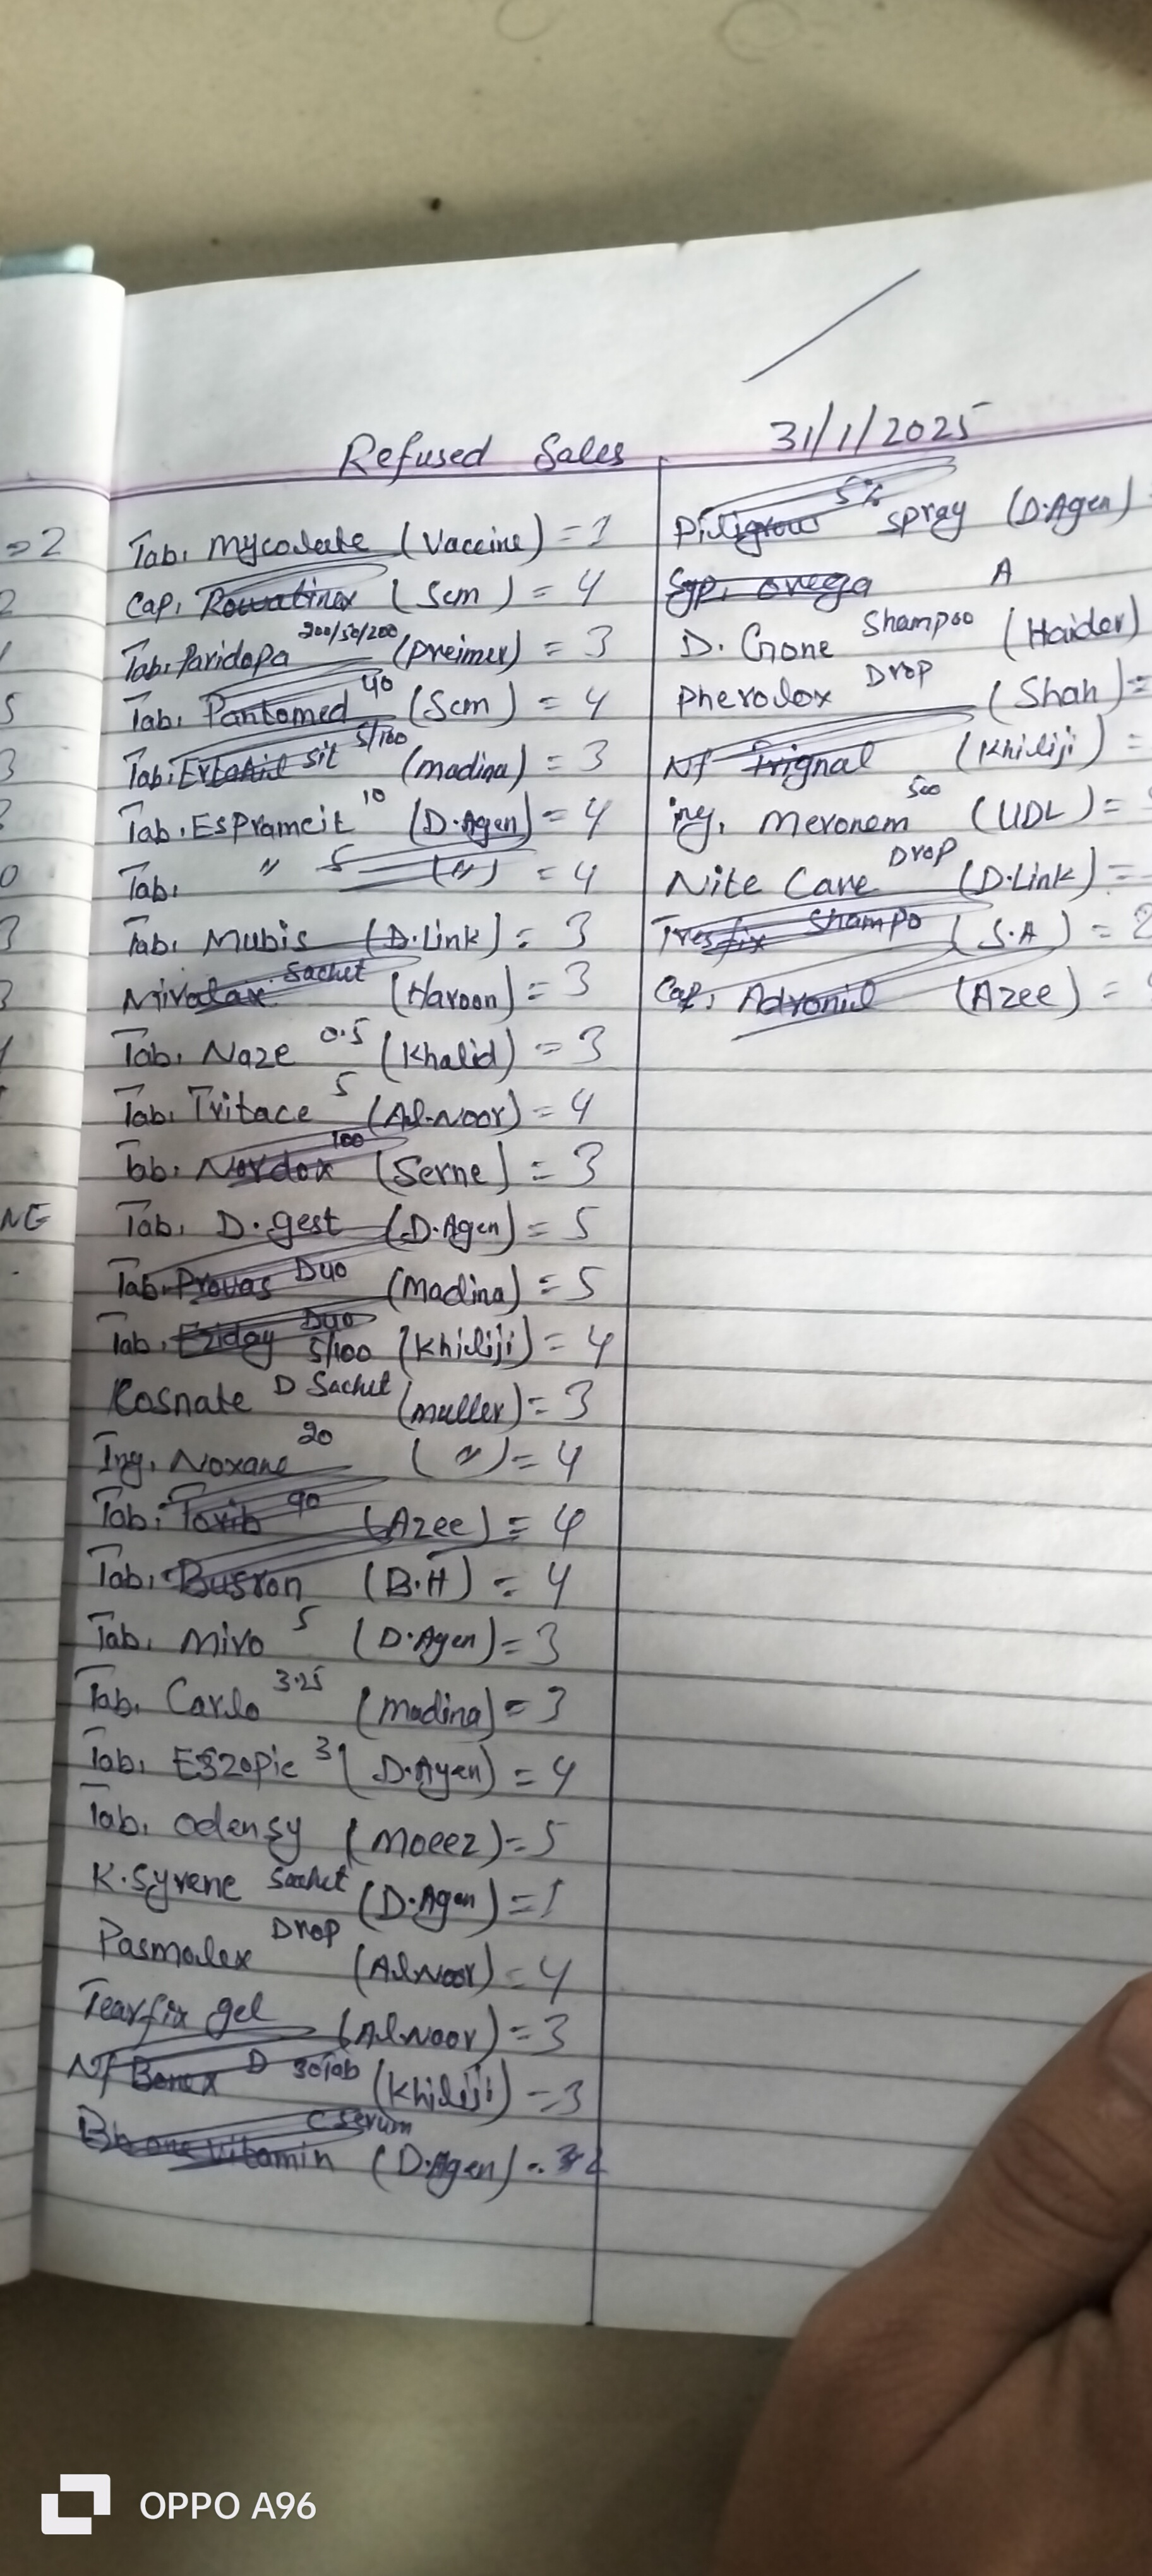 Refused Sales 31/1/2025
Tab. Mycolate (Vaccine) = 1
Cap. Rowatinex (Scm) = 4
Tab. Paridopa 200/50/200 (Preimer) = 3
Tab. Pantomed 40 (Scm) = 4
Tab. sit 5/100 (Madina) = 3
Tab. Espramcit 10 (D.Agen) = 4
Tab. " 5 (") = 4
Tab. Mubis (D.Link) = 3
Sachet (Haroon) = 3
Tab. Naze 0.5 (Khalid) = 3
Tab. Tritace 5 (Al-Noor) = 4
Tab. Nordox 100 (Serne) = 3
Tab. D.gest (D.Agen) = 5
Tab. Provas Duo (Madina) = 5
Tab. Eziday Duo 5/100 (Khiliji) = 4
Rosnate D Sachet (Muller) = 3
Inj. Noxane 20 (") = 4
Tab. Torib 90 (Azee) = 4
Tab. Busron (B.H) = 4
Tab. Mivo 5 (D.Agen) = 3
Tab. Carlo 3.25 (Madina) = 3
Tab. Eszopic 3 (D.Agen) = 4
Tab. Odensy (Moeez) = 5
K.Syrene Sachet (D.Agen) = 1
Pasmolex Drop (Al Noor) = 4
Tearfix gel (Al.Noor) = 3
Nf D 30Tab (Khiliji) = 3
vitamin C Serum (D.Agen)
5% Spray (D.Agen)
Syp. omega A
D. Gone Shampoo (Haider)
Pherodox Drop (Shah) =
Nf Trignal (Khiliji) =
inj. Meronem 500 (UDL) =
Nite Care Drop (D.Link) =
Tresfix Shampo (S.A) = 2
Cap. (Azee) =
=> 2
2
5
3
0
3
3
NE
OPPO A96